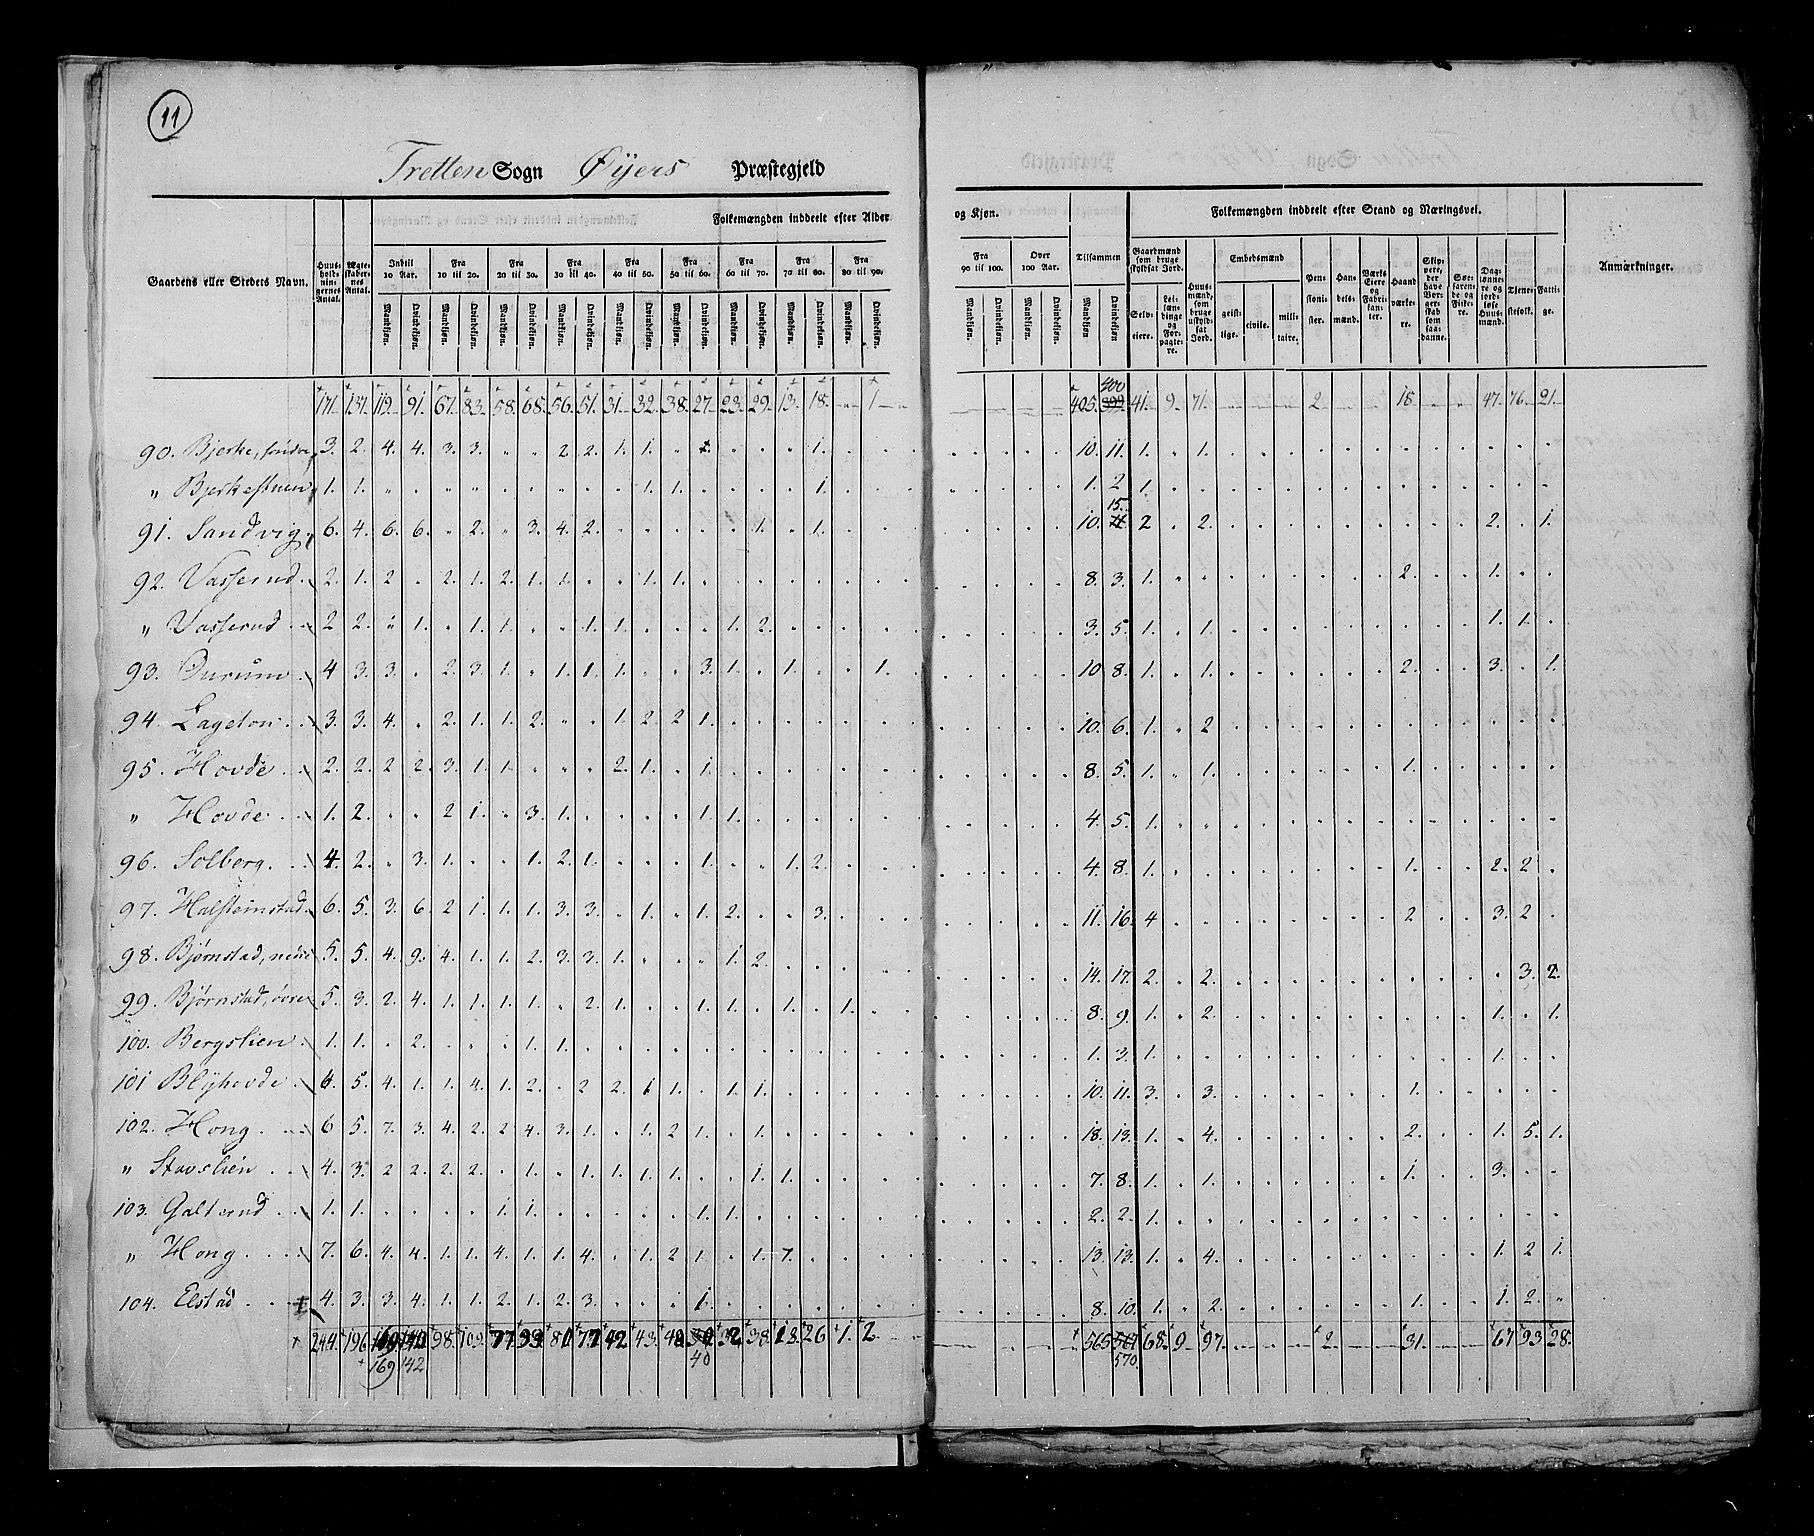 11
Tretten Sogn Øijers Præstegjeld
Folkemængden inddeelt efter Alder og Kjøn. Folkemængden inddeelt efter Stand og Næringsvei.
Gaardens eller Stedets Navn. Huusholdningernes Antal. Ægteskabernes Antal. Indtil 10 Aar. Fra 10 til 20. Fra 20 til 30. Fra 30 til 40. Fra 40 til 50. Fra 50 til 60. Fra 60 til 70. Fra 70 til 80. Fra 80 til 90. Fra 90 til 100. Over 100 Aar. Tilsammen Gaardmænd som bruge skyldsat Jord. Huusmænd, som bruge uskyldsat Jord. Embedsmænd Pensionister. Handelsmænd. Værks Eiere og Fabrikanter. Haandværkere. Skippere, der have Borgerskab som saadanne. Søefarende og Fiskere. Daglønnere og jordløse Huusmænd. Tjenestefolk. Fattige. Anmærkninger.
Mandkjøn. Qvindekjøn. Mandkjøn. Qvindekjøn. Mandkjøn. Qvindekjøn. Mandkjøn. Qvindekjøn. Mandkjøn. Qvindekjøn. Mandkjøn. Qvindekjøn. Mandkjøn. Qvindekjøn. Mandkjøn. Qvindekjøn. Mandkjøn. Qvindekjøn. Mandkjøn. Qvindekjøn. Mandkjøn. Qvindekjøn. Mandkjøn Qvindekjøn. Selveiere. Leilændinge og Forpagtere. geistlige. civile. militaire.
171. 137. 119. 91. 67. 83. 58. 68. 56. 51. 31. 32. 38. 27. 23. 29. 13. 18. „ 1 405. 399 400 41. 9. 71. 2. 18 47. 76. 21.
90. Bjerke, søndre 3. 2. 4. 4. 3. 3. „ „ 2. 2. 1. 1. „ 1. . . . 1. 10. 11. 1. . 1.
„ Bjerkestuen 1. 1. „ . „ „ „ „ „ . . 1. 1. . . . . 1. 1. 2 1.
91. Sandvig. 6. 4. 6. 6. „ 2. „ 3. 4. 2. . . . . . 1. . 1. 10. 15. 2 . 2. 2. . 1.
92. Vasserud. 2. 1. 2 . 2. 1. 2. 1. 1. . . 1. 1. 8. 3. 1. . . 2. 1.
„ Vasserud 2 2. „ 1. . 1. 1. . . 1. 1. . . . 1. 2. 3. 5. 1. . 1. 1. 1.
93. Ourum 4 3. 3. . 2. 3. 1. . 1. 1. 1. . . 3. 1. . 1. . . 1. 10 8. 1. . 1. 2. 3. . 1.
94. Lageton 3. 3. 4. . 2. 1. 1. 2. „ . 1. 2 2 1. 10. 6. 1. „ 2
95. Hovde 2. 2. 2 2. 3. 1. 1. . . . 2. 1. . 1. 8. 5. 1. „ 1. 1.
„ Hovde 1. 2. . . 2 1. . 3. 1. . . . . 1. 1. 4. 5. 1.
96. Solberg. 4. 2. „ 3. 1. . . 1. 2. 1. . . . 1. . . 1. 2. 4. 8. 1. 1. 2. 2
97. Halsteinstad. 6. 5. 3. 6. 2 1. 1. 1. 3. 3. . 1. . 1. 2. . . 3. 11. 16. 4 2 3. 2
98. Bjørnstad, nedre 5. 5. 4. 9. 4. 1. 1. 2. 3. 3. 1. . . . 1. 2. 14. 17. 2. . 2. . 3. 2.
99. Bjørnstad, øvre 5. 3. 2. 4. 1. 1. 1. 1. . 2. 1. . . 1. 1. . 1. . 1. 8. 9. 1. „ 2. 1. . 1.
100. Bergslien 1. 1. . 2. . . . 1. 1. 1. 3. 1. 1.
101 Blijhovde 6. 5. 4. 1. 1. 4. 1. 2. . 2 2. 1 1. . 1. 1. 10. 11. 3. . 3. 1.
102. Hong 6 5. 7. 3. 4. 2. 2 4. 3. 1. . 1. 2 1. . 1. 18. 13. 1. . 4. 2. 1. 5. 1.
„ Stavslien 4. 3. 2 2. 2. 2. . 1. . 1. 1. 1. 1. . . 1. 1. 7. 8. 1. . 1. 1. 3.
103. Galterud 1. 1. . . . . 1. 1. . . . . . 1. 1. 2. 2. 1.
„ Hong 7. 6. 4. 4. 1. 1. 4. 1. 1. 4. . 1. 2 1. . 1. 1. 13. 13. 1. . 4. 1. 2 1.
104. Elstad 4. 3. 3. 4. 1. 1. 2. 1. 2. 3. . . . 1. 8. 10. 1. „ 2. 1. 1. 2.
244. 196. 98. 109. 77 99. 80 77 42 43. 48. 32 38. 18. 26 1. 2 565 567 68. 9 97. 2. 31. 67 93 28.
169 142 40 570.